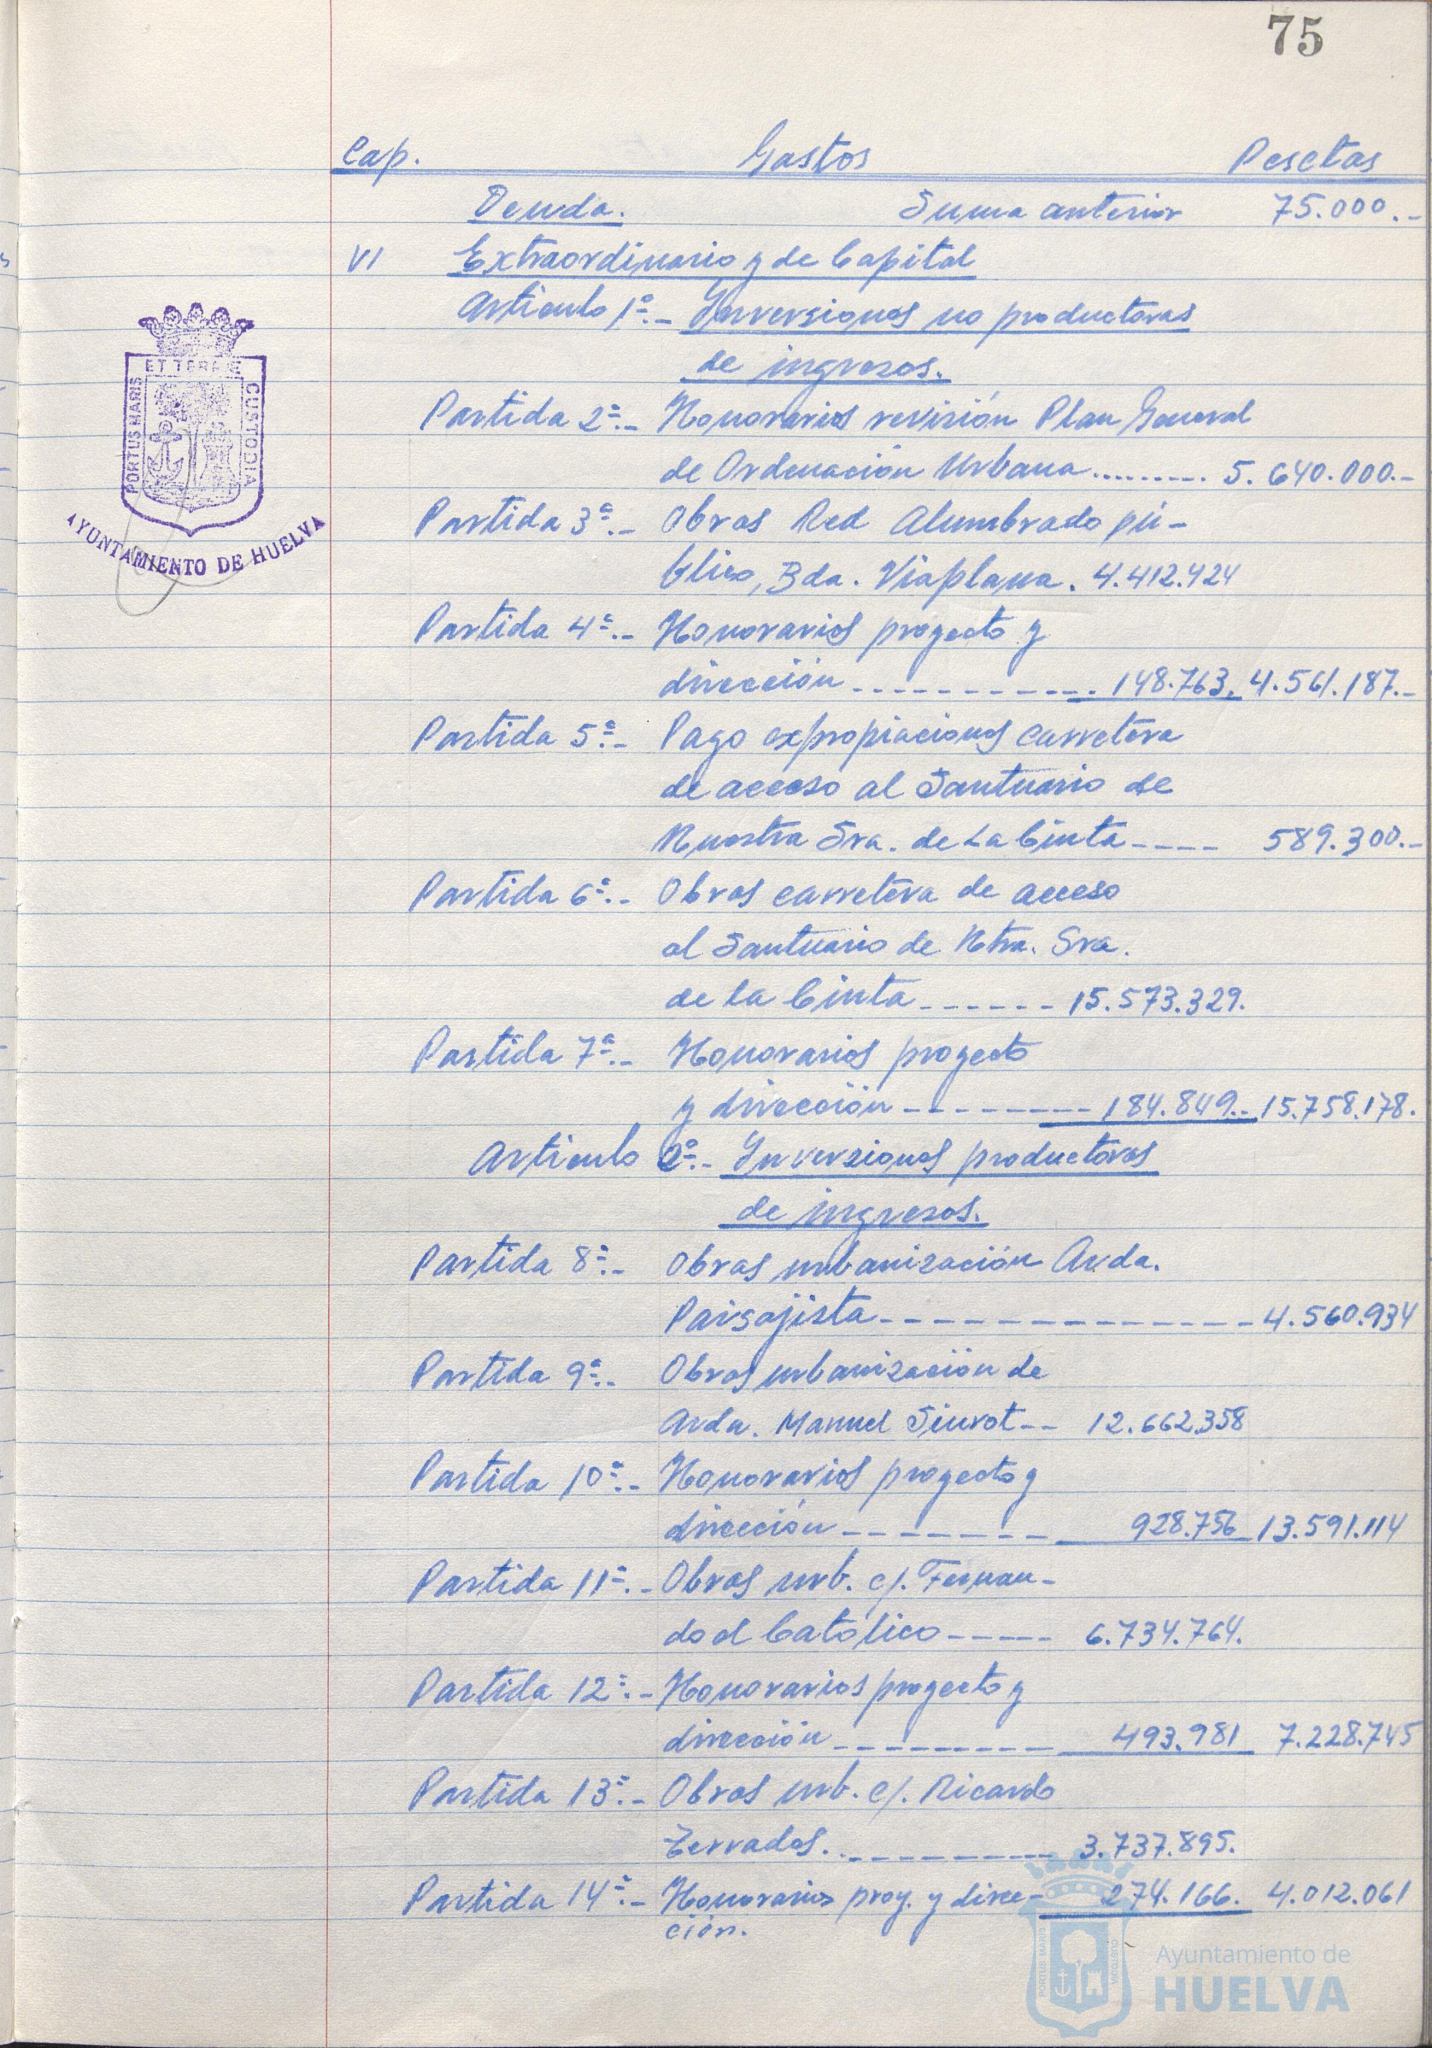 75
Cap. Gastos Pesetas
Deuda. Suma anterior 75.000.-
VI Extraordinario y de Capital
Artículo 1º.- Inversiones no productoras
de ingresos.
Partida 2ª.- Honorarios revisión Plan General
de Ordenación Urbana......... 5.640.000.-
Partida 3ª.- Obras Red Alumbrado pú-
blico, Bda. Viaplana. 4.412.424
Partida 4ª.- Honorarios proyecto y
dirección ----------- 148.763. 4.561.187.-
Partida 5ª.- Pago expropiaciones carretera
de acceso al Santuario de
Nuestra Sra. de La Cinta ---- 589.300.-
Partida 6ª.- Obras carretera de acceso
al Santuario de Ntra. Sra.
de la Cinta ------ 15.573.329.
Partida 7ª.- Honorarios proyecto
y dirección -------- 184.849.- 15.758.178.
Artículo 2º.- Inversiones productoras
de ingresos.
Partida 8ª.- Obras urbanización Avda.
Paisajista -------------- 4.560.934
Partida 9ª.- Obras urbanización de
Avda. Manuel Siurot -- 12.662.358
Partida 10ª.- Honorarios proyecto y
dirección -------- 928.756 13.591.114
Partida 11ª.- Obras urb. c/. Fernan-
do el Católico ----- 6.734.764.
Partida 12ª.- Honorarios proyecto y
dirección --------- 493.981 7.228.745
Partida 13ª.- Obras urb. c/. Ricardo
Terrades. ---------- 3.737.895.
Partida 14ª.- Honorarios proy. y direc- 274.166. 4.012.061
ción.
PORTUS MARIS ET TERRAE CUSTODIA
AYUNTAMIENTO DE HUELVA
Ayuntamiento de
HUELVA